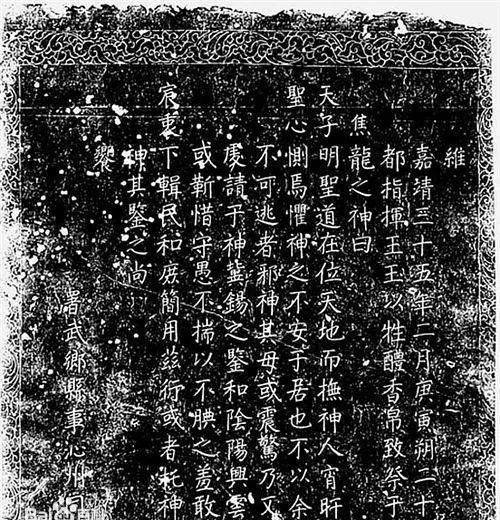 維
嘉靖三十五年二月庚寅朔二十
都指揮王王以牲醴香帛致祭于
焦龍之神曰
天子明聖道在位天地而撫神人宵旰
聖心惻焉懼神之不安于居也不以余
不可逃者邪神其毋或震驚乃又
虔請于神冀錫之鑒和陰陽興雲
或靳惜守愚不揣以不腆之羞敢
宸衷下輯民和庶簡用茲行或者托神
神其鑒之尚
饗
署武鄉縣事沁州司